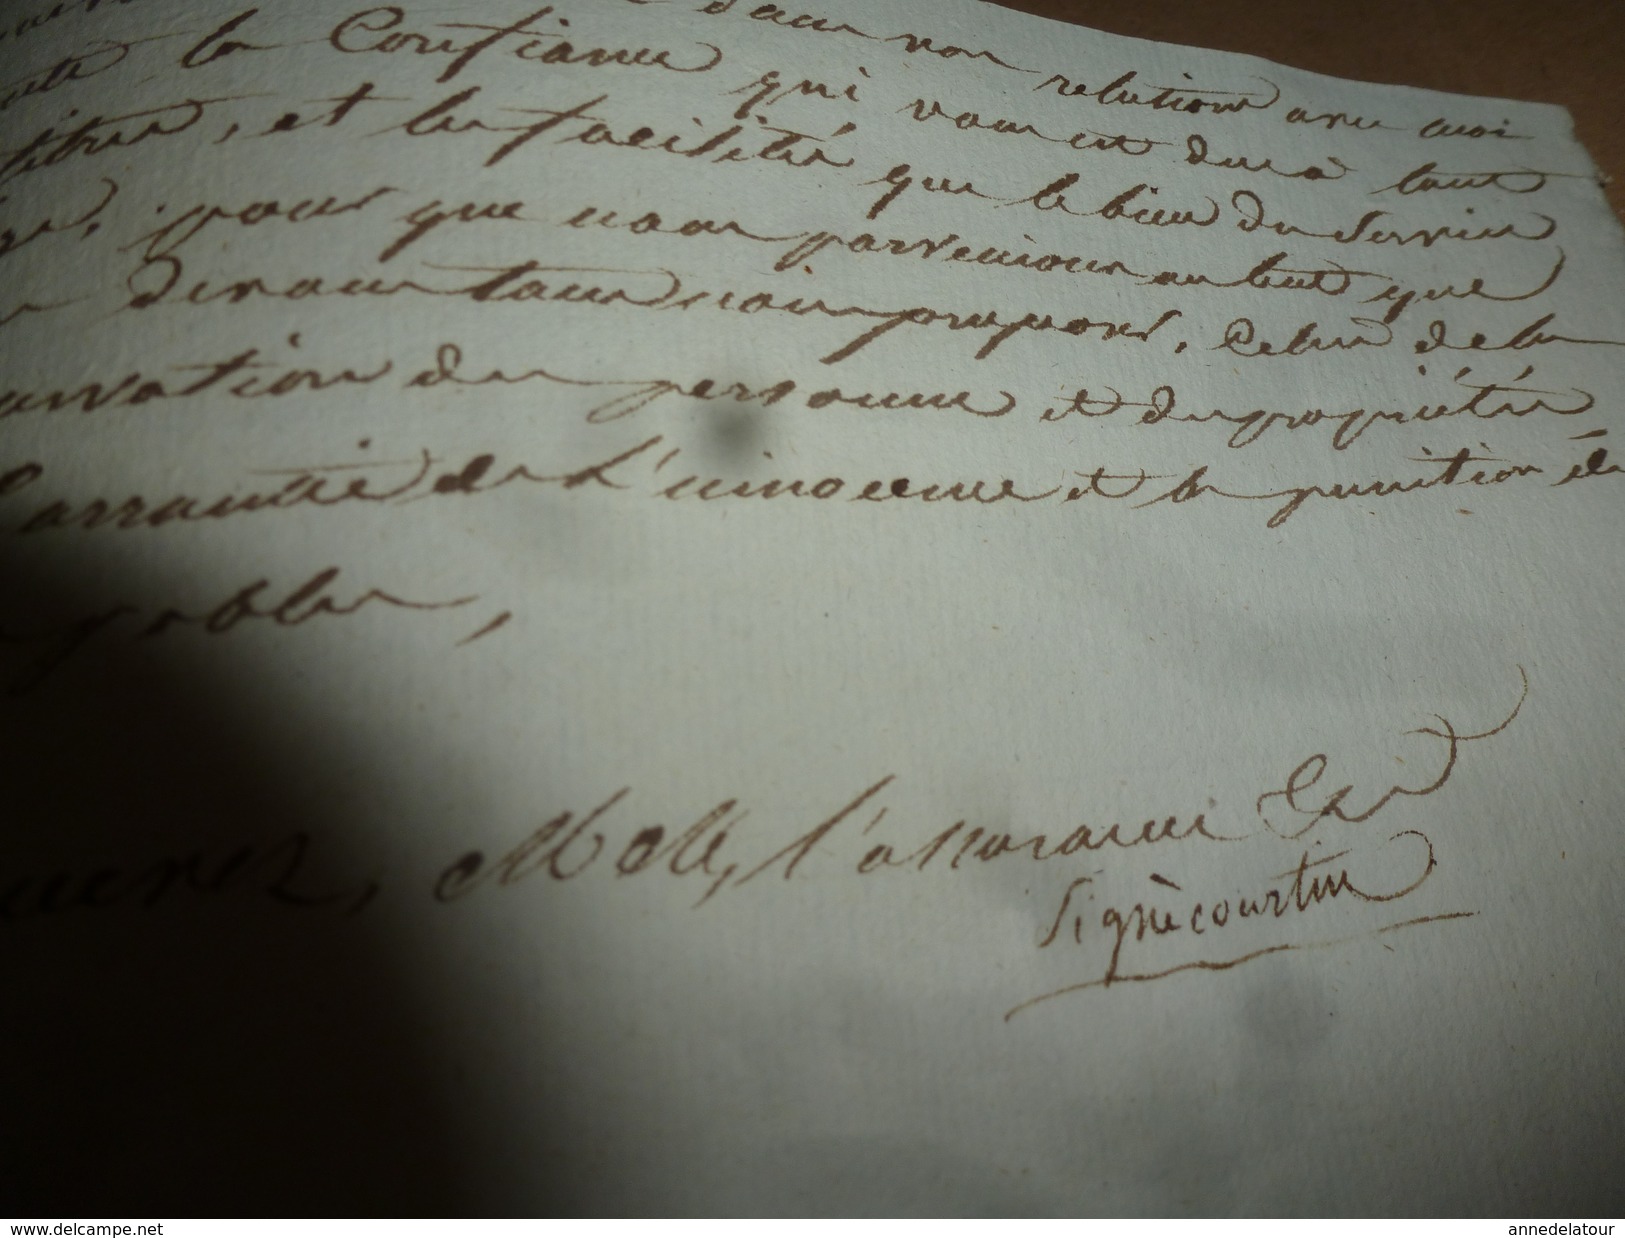 dans vos relations avec moi
la Confiance qui vous est due à tant
titres, et les facilités que le bien du Service
, pour que nous parvenions au but que
devons tous nous proposer, Celui de la
des personnes et des propriétés
de L'innocence et la punition des
,
, MM, l'assurance &a
Signé Courtin
www.delcampe.net
annedelatour